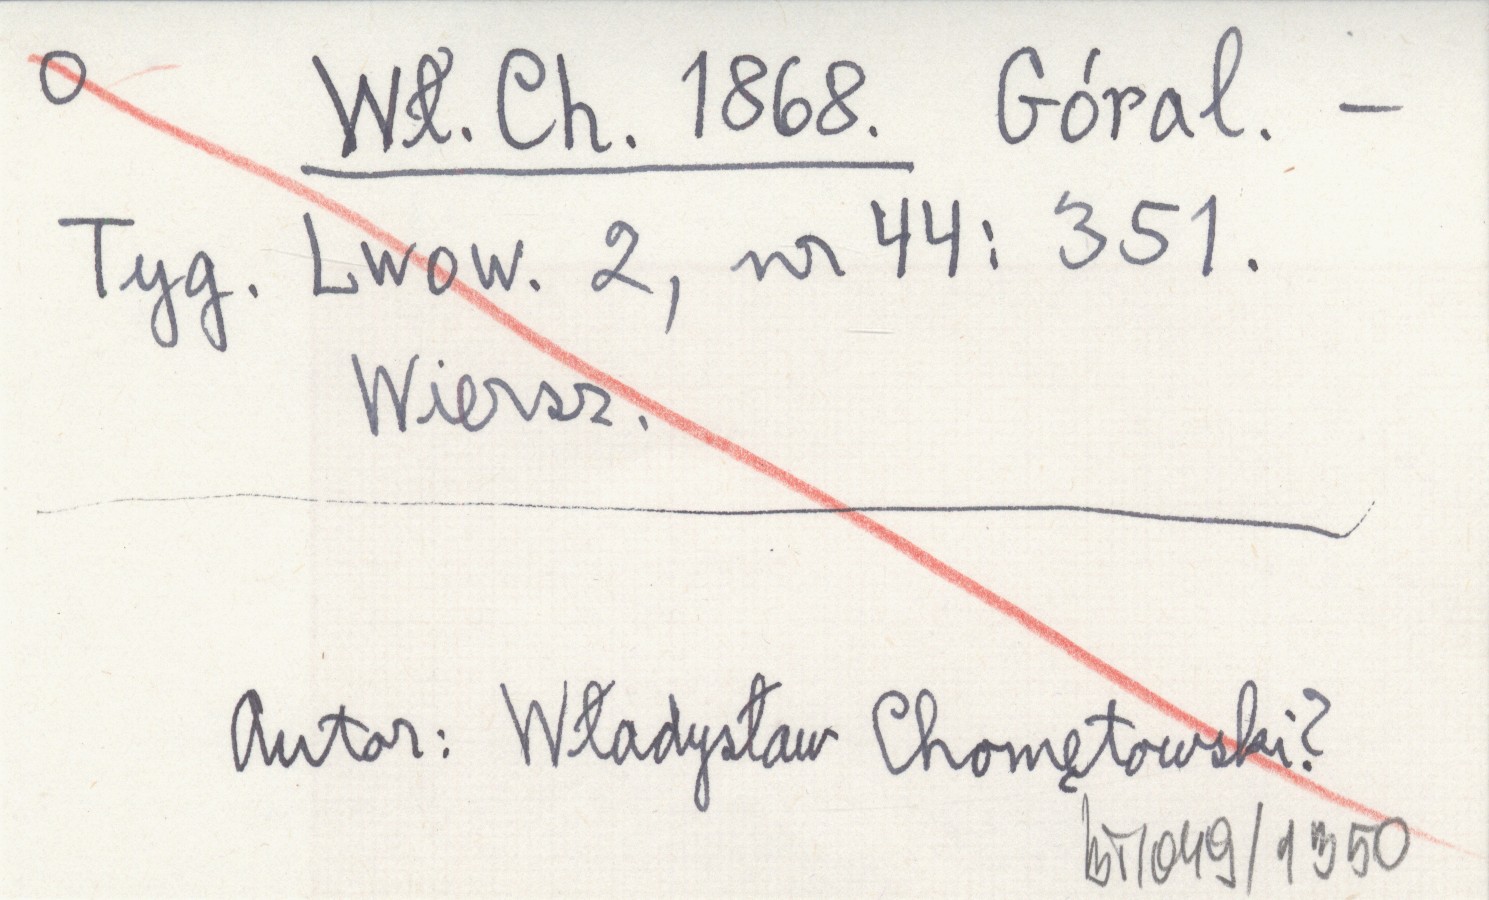 O Wł. Ch. 1868. Góral. –
Tyg. Lwow. 2, nr 44: 351.
Wiersz.
Autor: Władysław Chomętowski?
/049/1350